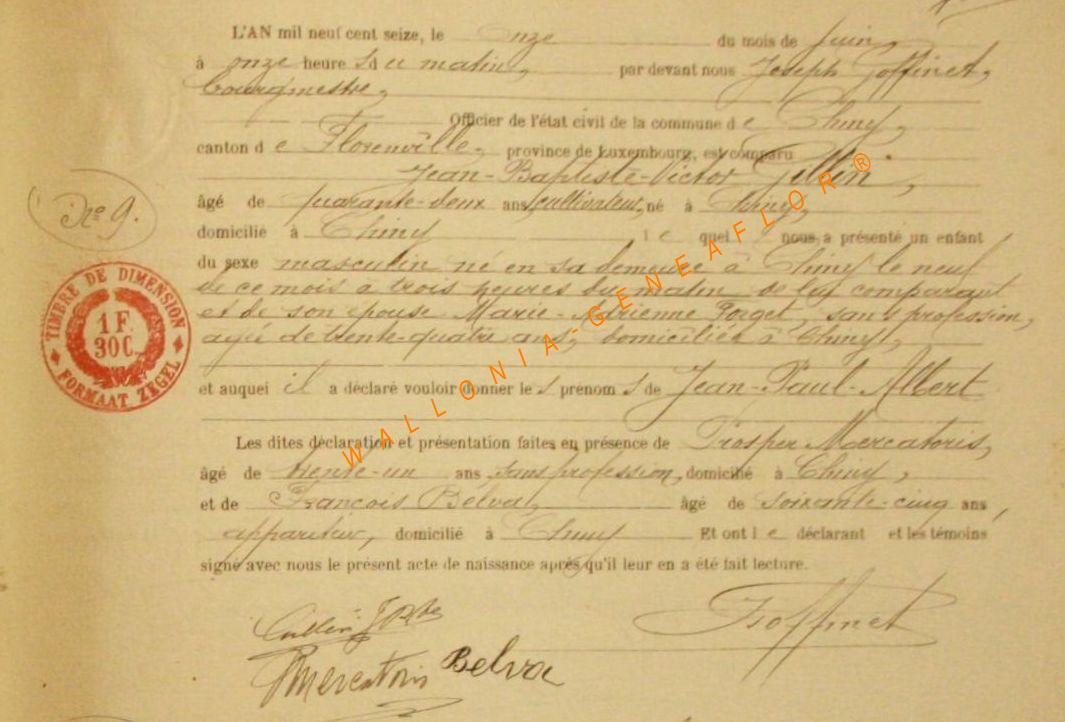 L'AN mil neuf cent seize, le onze du mois de juin,
à onze heures du matin, par devant nous Joseph Goffinet,
bourgmestre,
Officier de l'état civil de la commune de Chiny,
canton de Florenville, province de Luxembourg, est comparu
Jean-Baptiste-Victor
âgé de quarante-deux ans, cultivateur, né à Chiny,
domicilié à Chiny lequel nous a présenté un enfant
du sexe masculin né en sa demeure à Chiny le neuf
de ce mois à trois heures du matin de lui comparant
et de son épouse Marie-Adrienne Forget, sans profession,
agée de trente-quatre ans, domiciliée à Chiny,
N° 9.
TIMBRE DE DIMENSION
1 F.
30 C.
FORMAAT ZEGEL
et auquel il a déclaré vouloir donner les prénoms de Jean-Paul-Albert
Les dites déclaration et présentation faites en présence de Prosper Mercatoris,
âgé de trente-un ans, sans profession, domicilié à Chiny,
et de François Belva, âgé de soixante-cinq ans,
appariteur, domicilié à Chiny Et ont le déclarant et les témoins
signé avec nous le présent acte de naissance après qu'il leur en a été fait lecture.
Goffinet
Mercatoris Belva
WALLONIA-GENEAFLOR ®